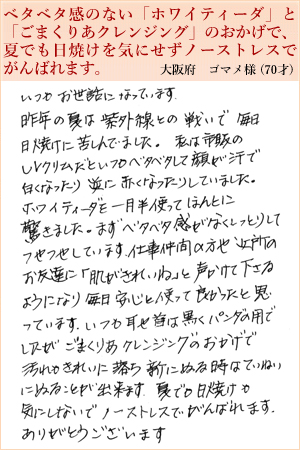 ベタベタ感のない「ホワイティーダ」と
「ごまくりあクレンジング」のおかげで、
夏でも日焼けを気にせずノーストレスで
がんばれます。　　大阪府　ゴマメ様(70才)
いつもお世話になっています。
昨年の夏は紫外線との戦いで毎日
日焼けに苦しんでました。私は市販の
UVクリムだといつもベタベタして顔が汗で
白くなったり逆に赤くなったりしていました。
ホワイティーダを一月半使ってほんとに
驚きました。まずベタベタ感がなくしっとりして
つやつやしています。仕事仲間の方や近所の
お友達に「肌がきれいね」と声かけて下さる
ようになり毎日安心と使って良かったと思
っています。いつも耳や首は黒くパンダみ用で
したが ごまくりあクレンジングのおかげで
汚れもきれいに落ち新にぬる時もていねい
にぬることが出来ます。夏でも日焼けも
気にしないでノーストレスでがんばれます。
ありがとうございます